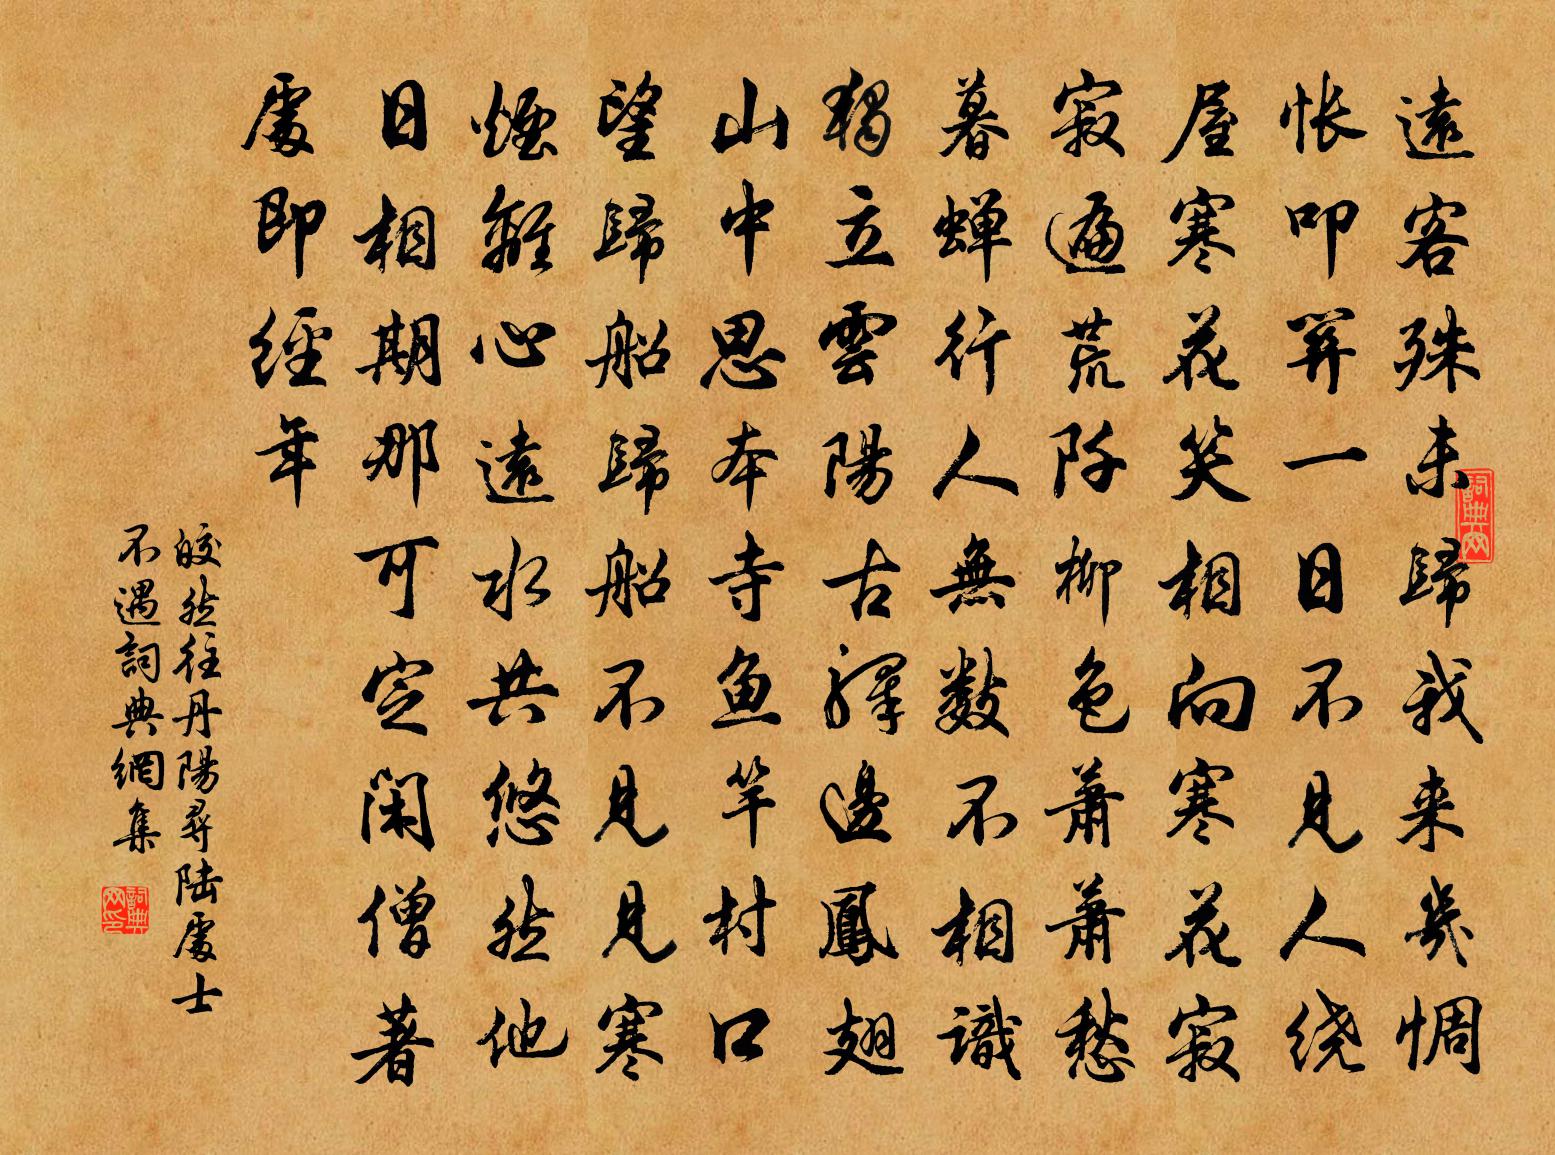 遠客殊未歸我来幾惆
悵叩関一日不見人绕
屋寒花笑相向寒花寂
寂遍荒阡柳色蕭蕭愁
暮蝉行人無數不相識
獨立雲陽古驛邊鳳翅
山中思本寺鱼竿村口
望歸船歸船不見見寒
煙離心遠水共悠然他
日相期那可定闲僧著
處即經年
皎然往丹陽尋陆處士
不遇詞典網集
詞典网
詞典网印